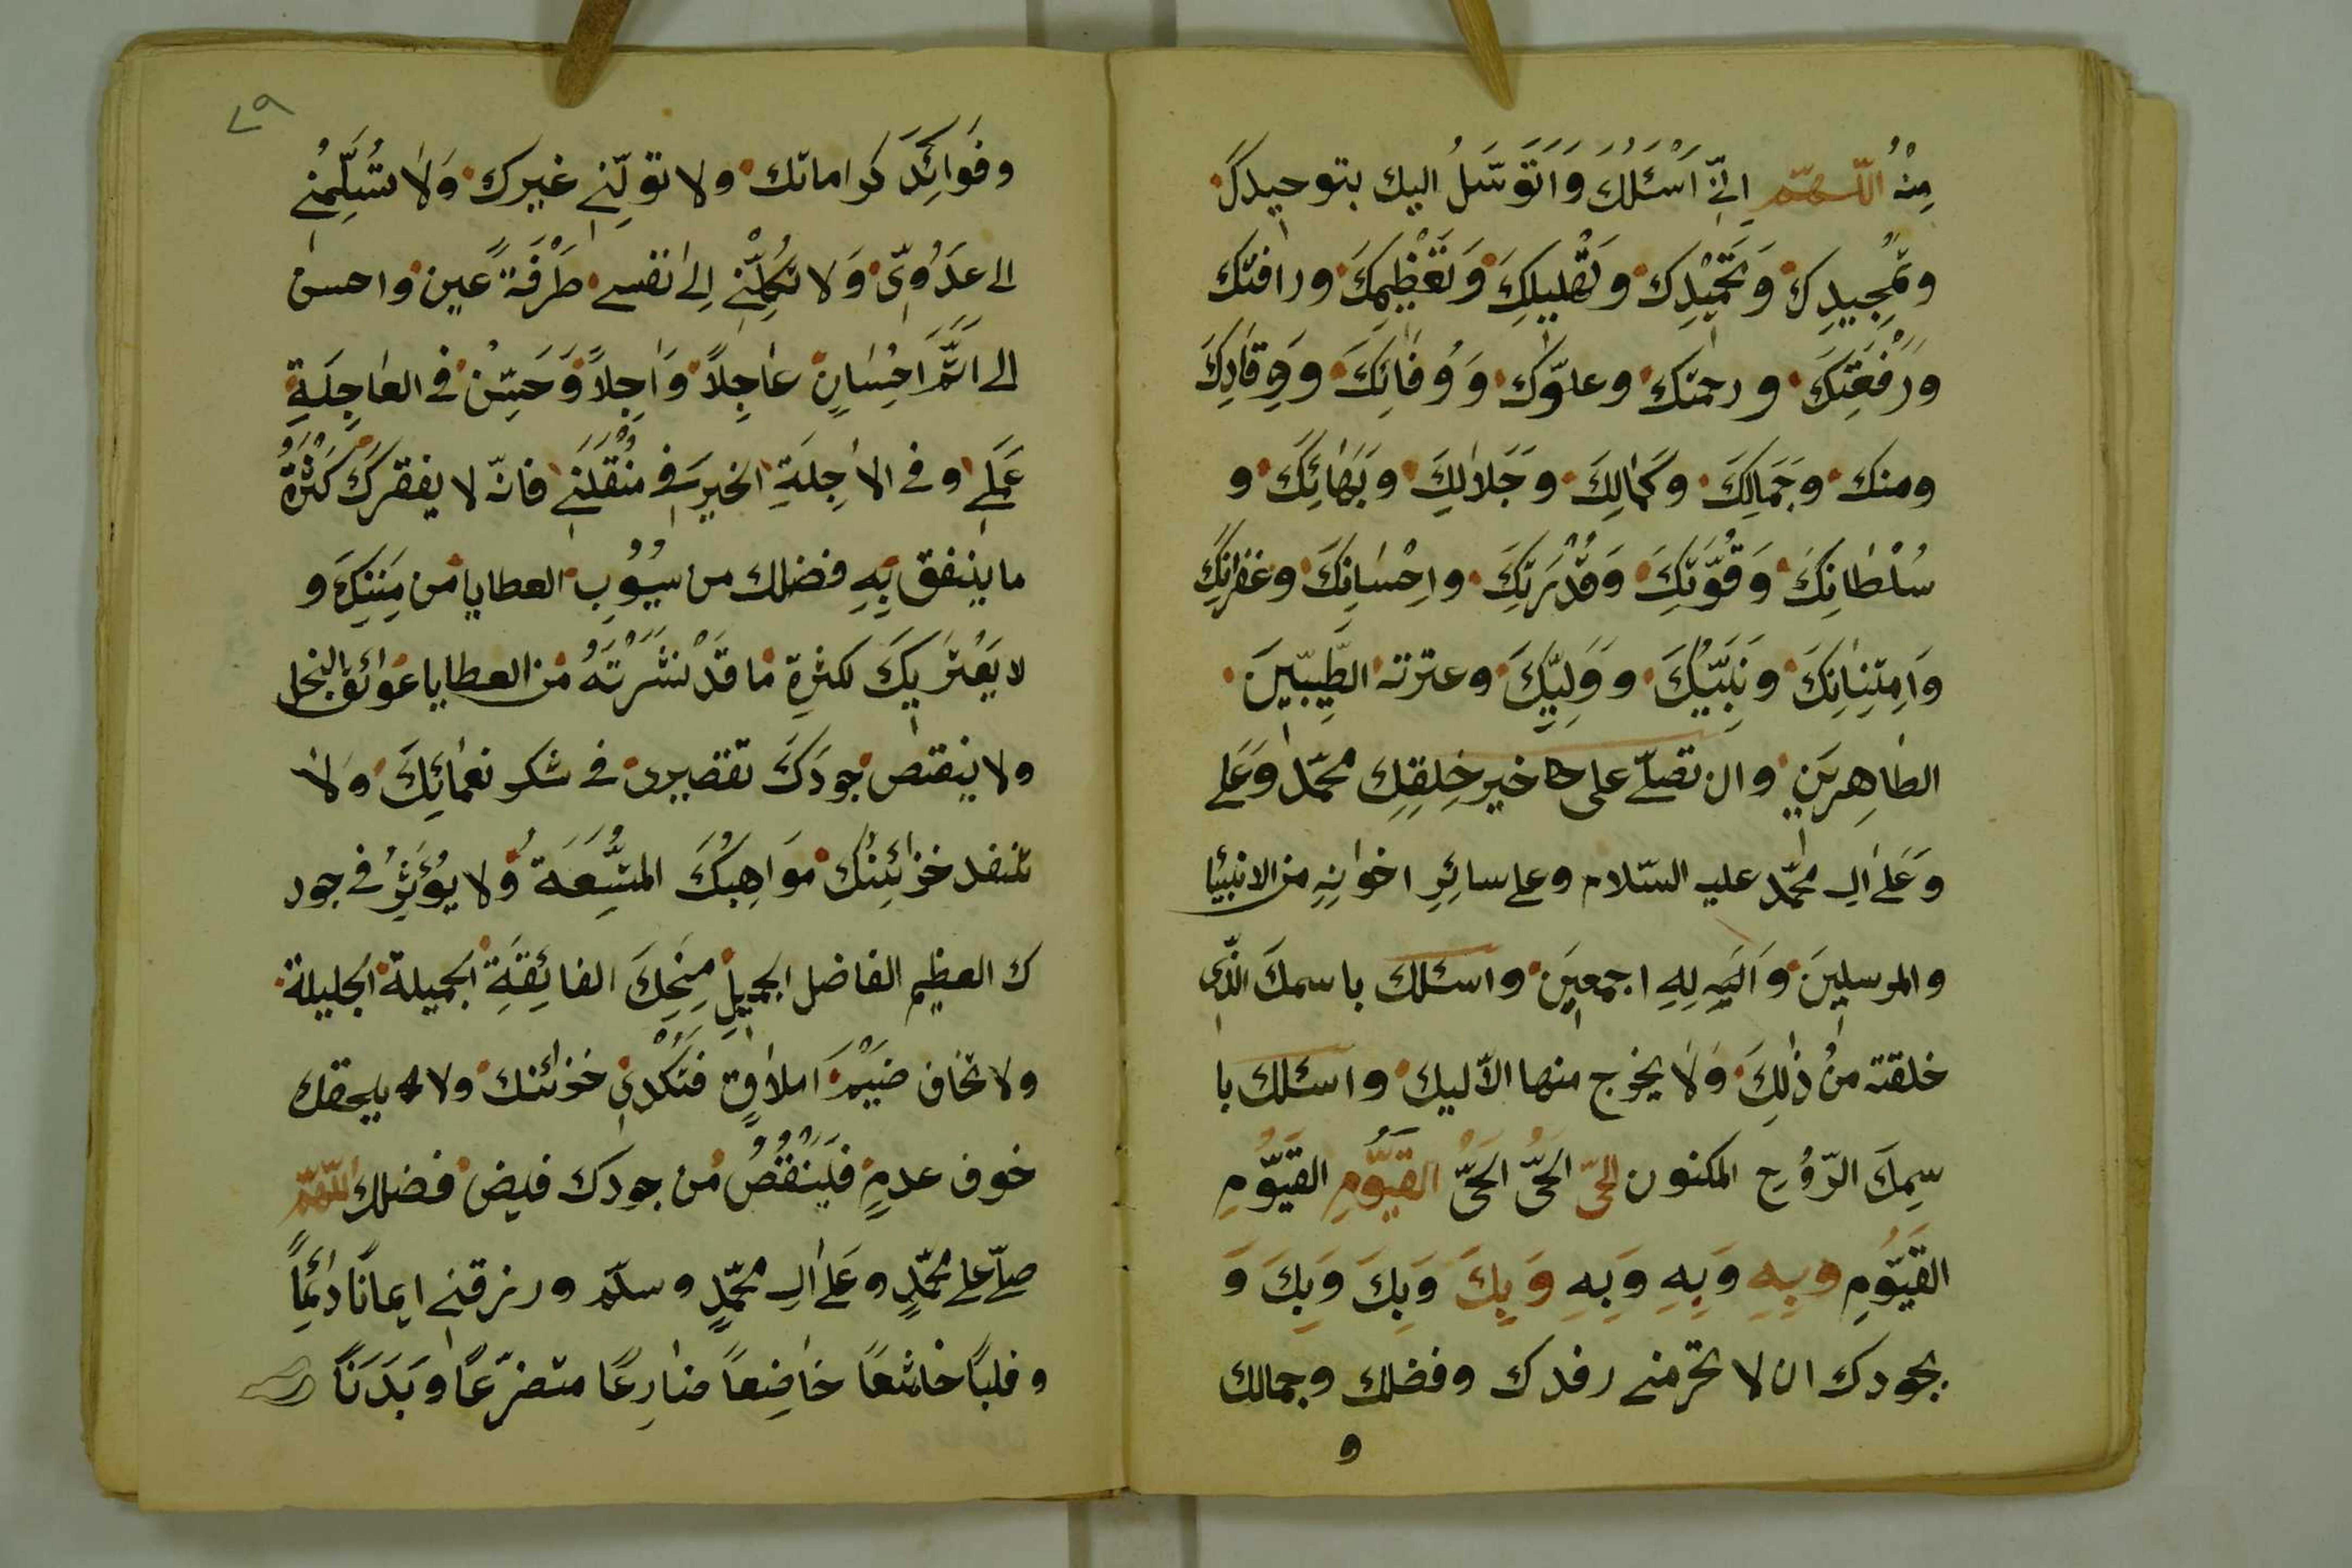 مِنْهُ اللّهمّ اِنّي اَسْئَلُكَ وَاَتَوَسَّلُ اليك بتوحيدكَ
وتَمْجِيدِكَ وَتَحْمِيْدِك وَتَهْلِيلِكَ وَتَعْظِيمِكَ ورافتك
وَرَفْعَتِكَ ورحمتك وعلوّك وَوُفَائِكَ وَوِقَادِكَ
ومنك وجَمَالِكَ وكَمالِكَ وجَلالِكَ وبَهائِكَ و
سُلْطانِكَ وَقُوَّتِكَ وَقُدْرَتِكَ واِحْسانِكَ وغفرانك
وَاِمتِنِانِكَ وَنَبِيّكَ ووَلِيِّكَ وعترته الطَّيِبّينَ
الطاهِرِينَ وان تصلّے على خير خلقِك محمّد وعَلے
وَعَلے الِ محمّد عليه السّلام وعلے سائِرِ اخوانِهِ من الانبيٰا
والمرسلِينَ وَالَيهِ لِلهِ اجمعِينَ واسئلك باسمكَ الذّى
خلقته مِنْ ذٰلِكَ وَلا يخرج منها الاّ ليك واسئلك با
سّمِكَ الرّوُحِ المكنون الحىّ الحَىُّ الحَىُّ القَيُّومِ القَيّوُمِ
القَيّوُمِ وبِهِ وَبِهِ وَبِهِ وَبِكَ وَبِكَ وَبِكَ وَ
بجودك ان لا تحرمنے رفدك وفضلك وجمالك
و
٧٩
وفَوائِدَ كراماتك ولا تولّنِے غيرك وَلا تُسَلِّمْنِے
الى عدَوُىّ وَلا تكِلْنِے اِلٰے نفسے طَرْفَةً عين واحسن
الى اتمَّ احِسْانٍ عاٰجِلاً وَاٰجِلاً وَحَسِّنْ فے العاجِلَةِ
عَمَلِے وفے الاٰجِلَةِ الخير فے مُنْقَلَبِے فانّه لا يفقركَ كَثْرَةُ
ما ينفق بِهِ فضلك من سُيُوبِ العطايا من مِنَنِكَ و
لا يَعْتَرِيكَ لكثرةِ ما قَدْ نَشَرْتَهُ من العطايا عَوائق البخل
ولا ينقص جودَكَ تقصيرى فے شكر نعمائِكَ وَلا
تنفد خزائِنكَ مَواهِبُكَ المتّسِعَةُ ولا يُؤَثِرُ فے جود
ك العظيم الفاضل الجميلِ مِنَحِكَ الفائِقَةِ الجميلة الجليلة
ولا تخاف ضَيْمَ املاقٍ فَتُكْدِي خزائنك ولا يلحقك
خوف عدمٍ فَيَنْقُصُ مِن جودك فيض فضلك اللّهمّ
صلّ علے محمّدٍ وعَلے الِ محمّدٍ وسلّم ورزقنے ايماناً دائِماً
وقلباً خاشعاً خاضِعاً ضارِعاً متضرّعاً وبَدَناً